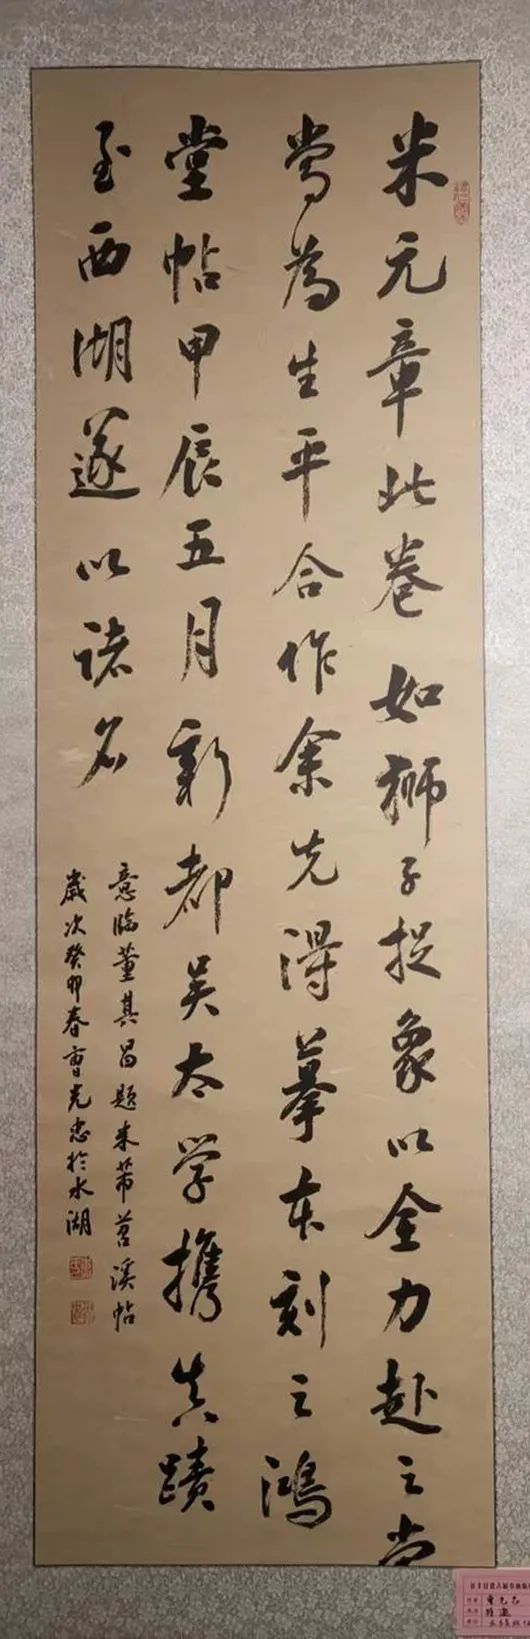 米元章此卷如獅子捉象以全力赴之當
當為生平合作余先得摹本刻之鴻
堂帖甲辰五月新都吴太学攜真蹟
至西湖遂以諸名
意臨董其昌題米芾苕溪帖
歲次癸卯春曹光忠於水湖